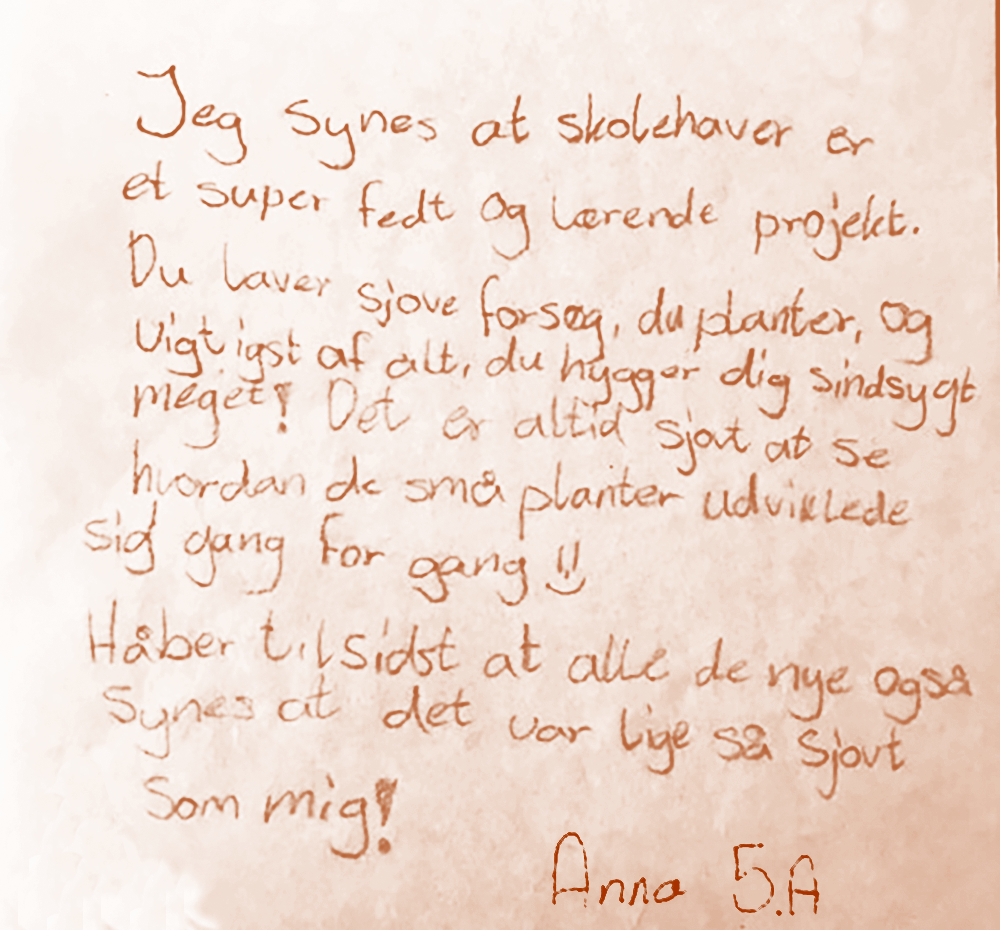 Jeg synes at skolehaver er
et super fedt og lærende projekt.
Du laver sjove forsøg, du planter, og
vigtigst af alt, du hygger dig sindsygt
meget! Det er altid sjovt at se
hvordan de små planter udviklede
sig gang for gang !!
Håber til sidst at alle de nye også
synes at det var lige så sjovt
som mig!
Anna 5.A